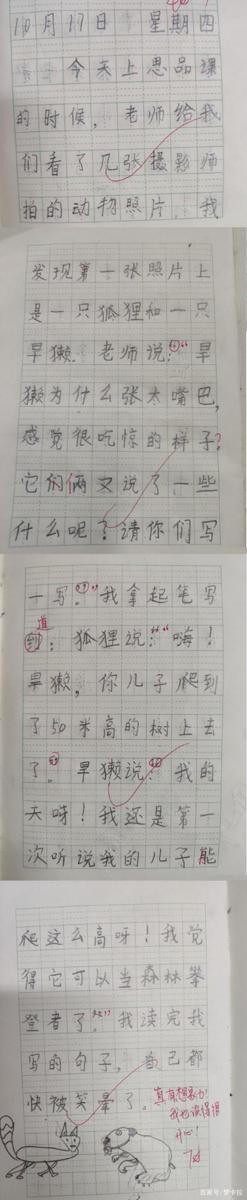 10月17日 星期四
今天上思品课
的时候，老师给我
们看了几张摄影师
拍的动物照片，我
发现第一张照片上
是一只狐狸和一只
旱獭。老师说：“旱
獭为什么张大嘴巴，
感觉很吃惊的样子？
它们俩又说了一些
什么呢？请你们写
一写。”我拿起笔写
道
到：狐狸说：“嗨！
旱獭，你儿子爬到
了50米高的树上去
了。”旱獭说：“我的
天呀！我还是第一
次听说我的儿子能
爬这么高呀！我觉
得它可以当森林攀
登者了。”我读完我
写的句子，自己都
快被笑晕了。
真有想象力！
我也读得很
开心！
百家号/梦卡拉